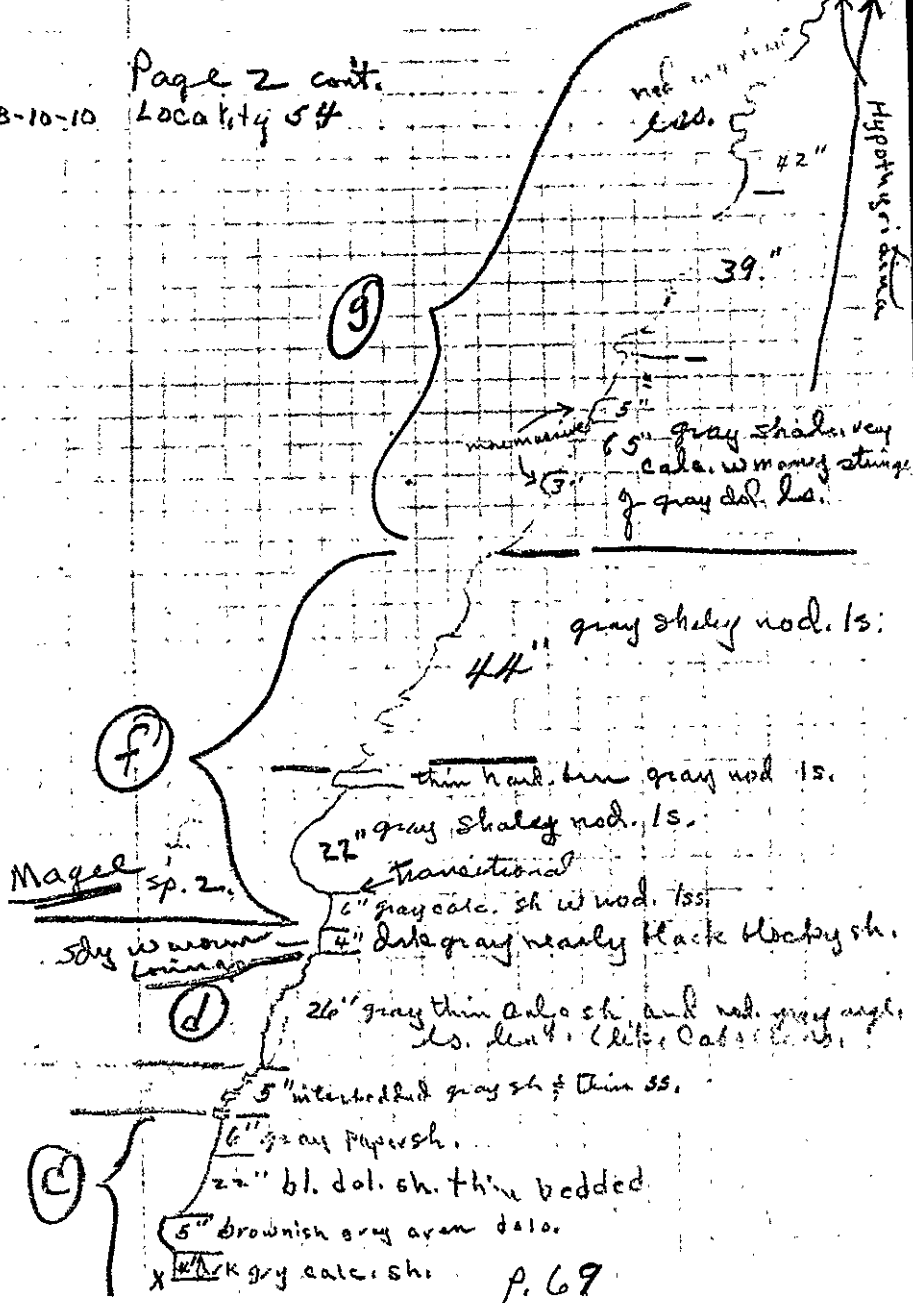 Page 2 cont.
8-10-10 Locality 54
42"
39."
Hypothyridina
g
5"
more massive
65" gray shale, very
calc. w many stringe
(3"
of gray dol. ls.
gray shaley nod. ls.
44"
f
thin hard. brn gray nod ls.
22" gray shaley nod. ls.
transitional
Magel sp. 2.
6" gray calc. sh w nod. lss.
sdy w worm
borings
4" dark gray nearly black blocky sh.
d
26" gray thin sh. and nod. gray
ls.
5" interbedded gray sh & thin ss.
6" gray papersh.
C
22" bl. dol. sh. thin bedded
5" brownish gray aren dolo.
X 4" drk gry calc. sh.
P. 69